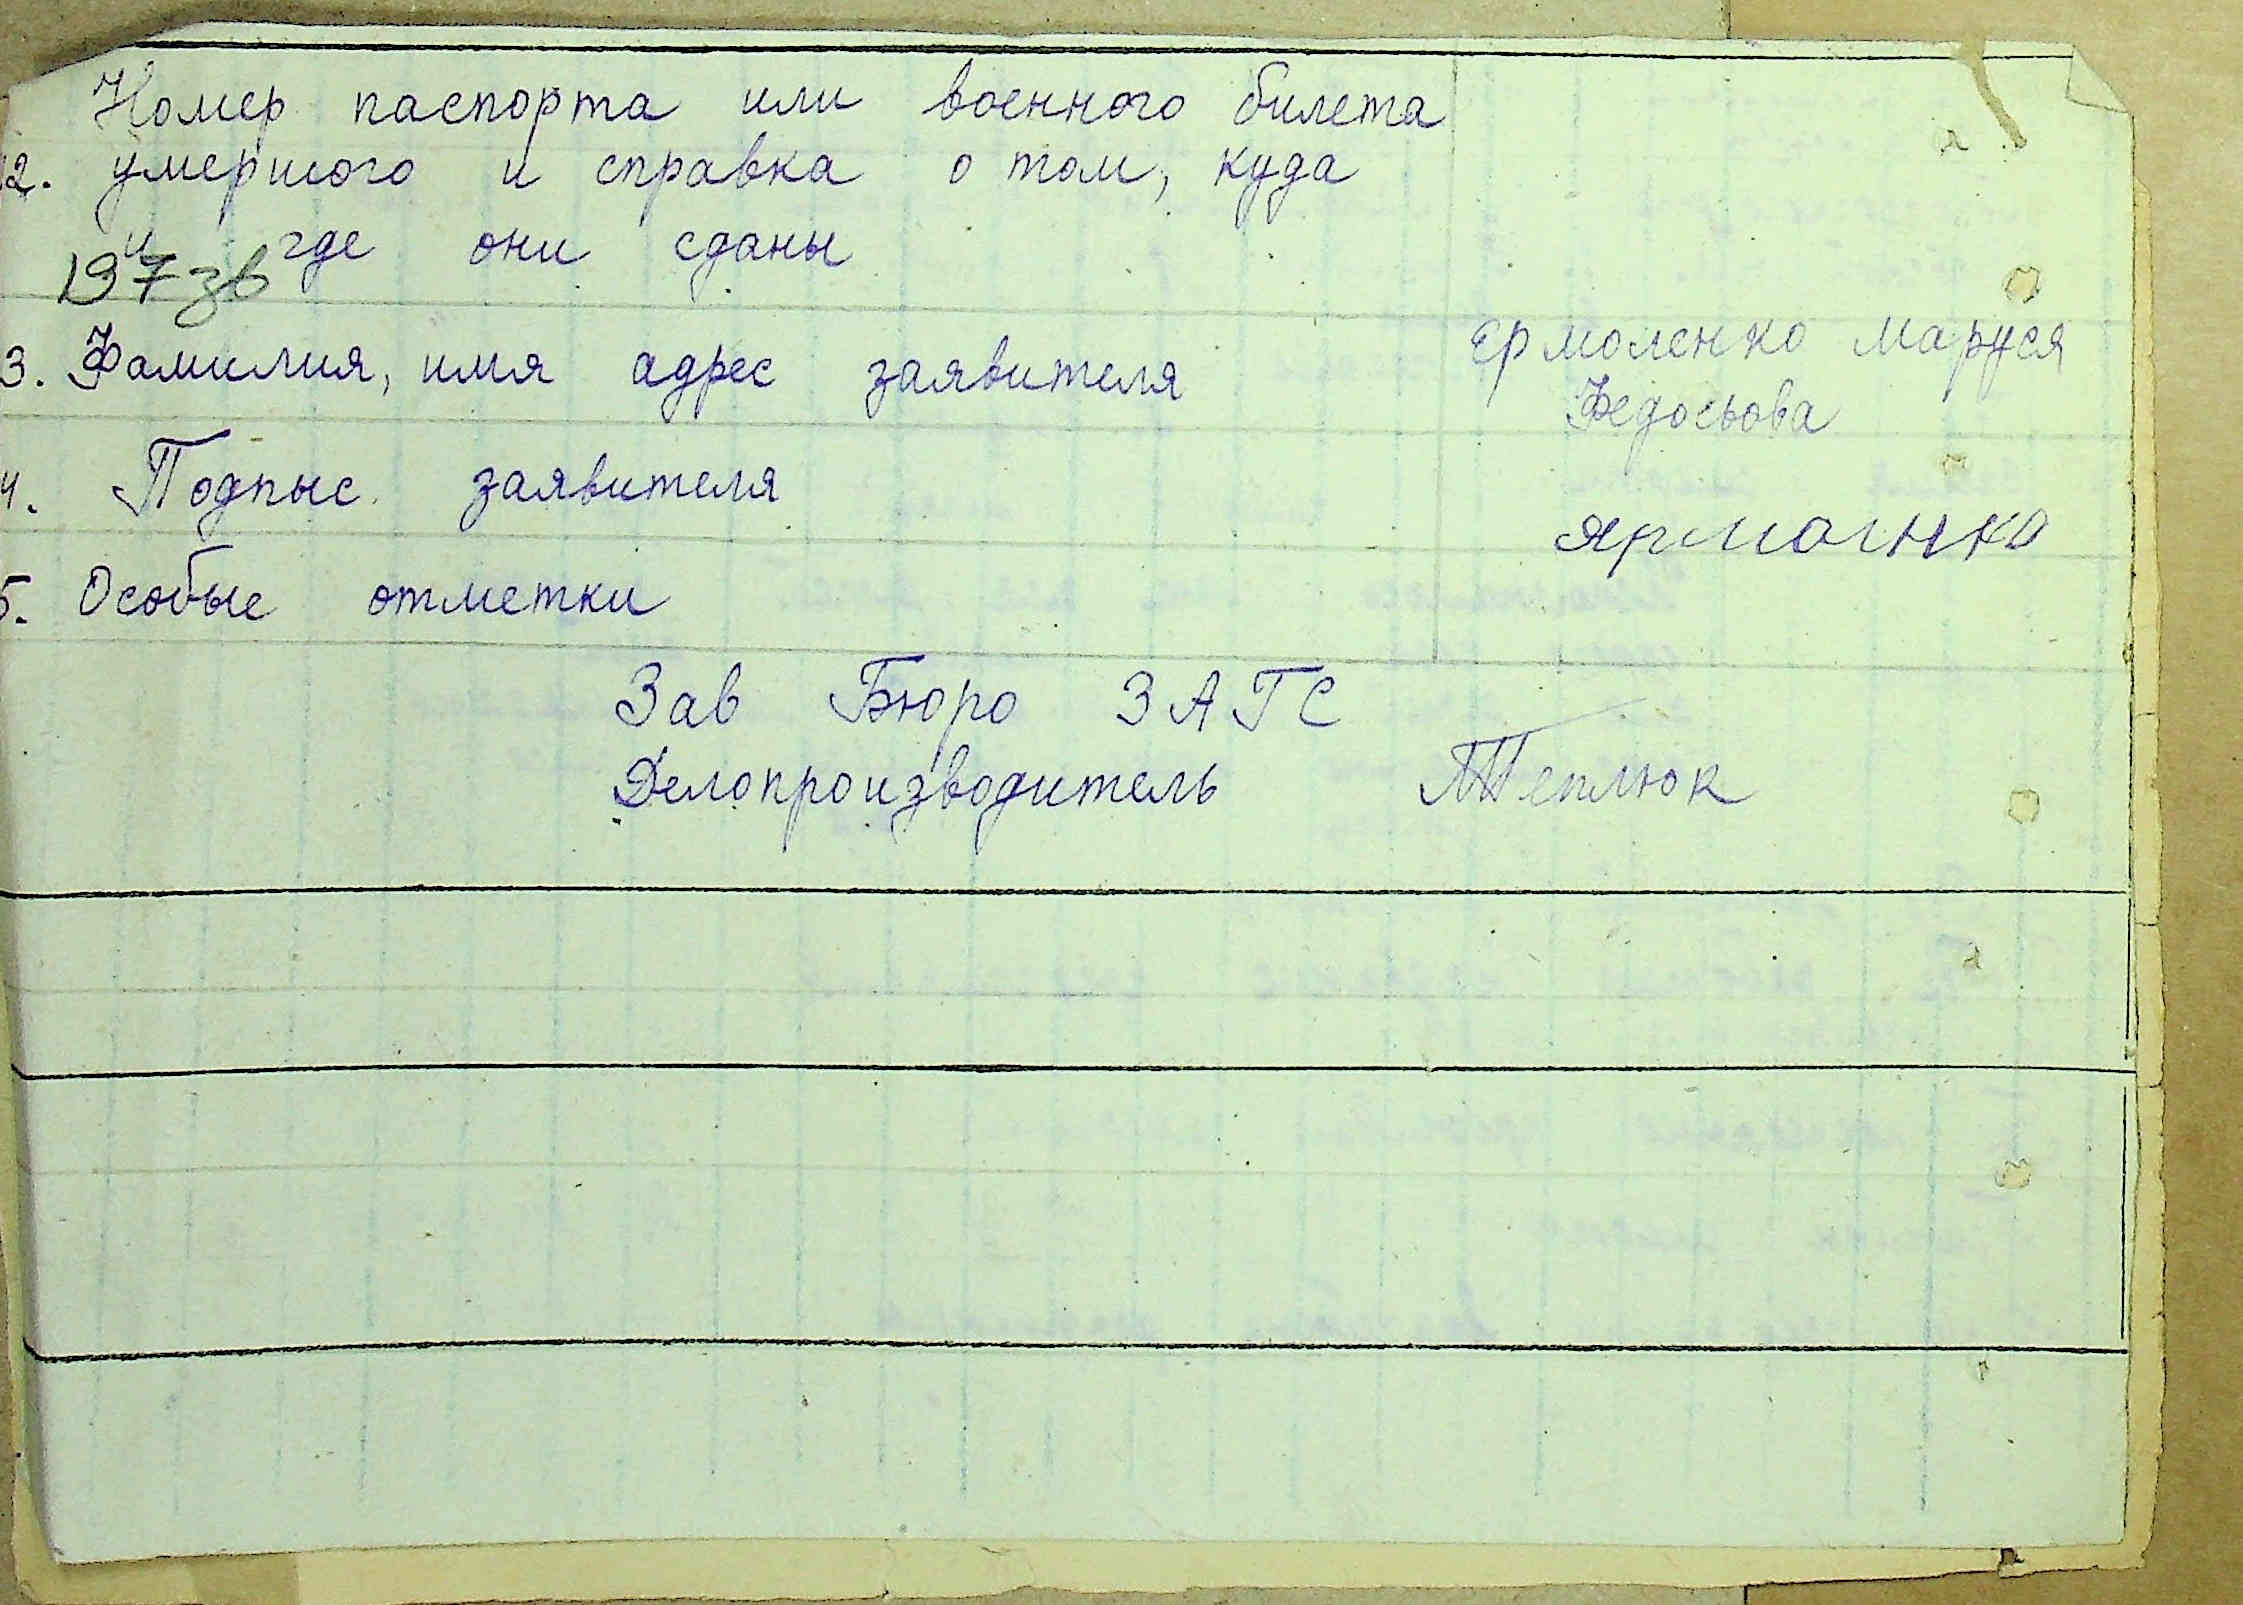 Номер паспорта или военного билета
12. умершого и справка о том, куда
и где они сданы
197зв
3. Фамилия, имя адрес заявителя
Ермоленко Маруся
Федосьова
4. Подпыс заявителя
Ярмоинко
5. Особые отметки
Зав Бюро ЗАГС
Делопроизводитель Теплюк